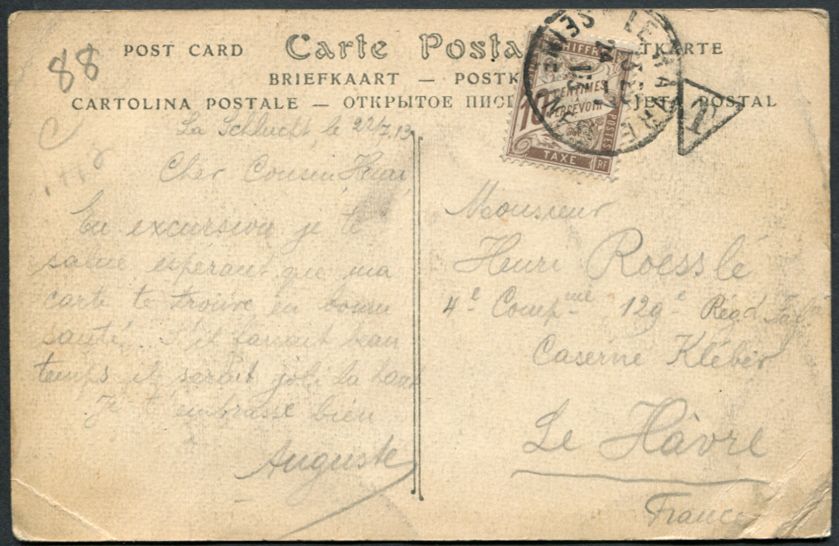 88
POST CARD Carte Posta TKARTE
BRIEFKAART — POSTK
CARTOLINA POSTALE — ОТКРЫТОЕ ПИС POSTAL
CHIFFRE
10 CENTIMES
PERCEVOIR
POSTES
TAXE RF
LE HAVRE
SEINE
T
La Schlucht le 22/7.13
Cher Cousin Henri
En excursion je te
salue esperant que ma
carte te trouve en bonne
santé. S'il faisait beau
temps il serait joli la haut
Je t'embrasse bien
Auguste
Monsieur
Henri Roesslé
4e Compnie 129e Regd
Caserne Kléber
Le Hâvre
France